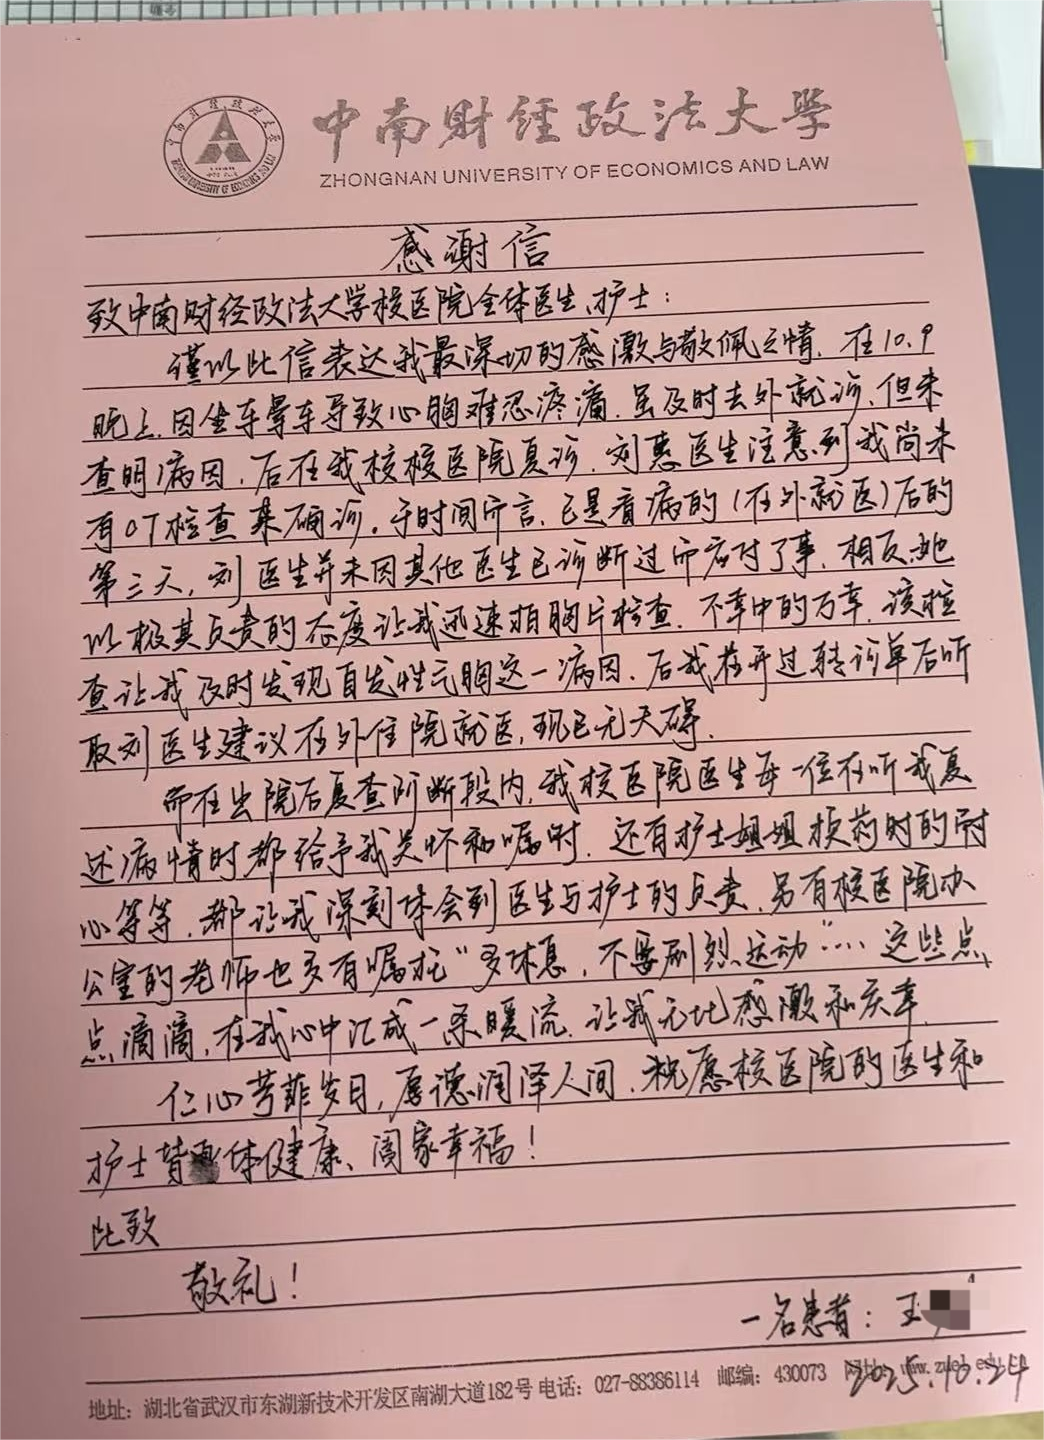 中南财经政法大学
ZHONGNAN UNIVERSITY OF ECONOMICS AND LAW
感谢信
致中南财经政法大学校医院全体医生、护士：
谨以此信表达我最深切的感激与敬佩之情。在10.9
晚上，因坐车晕车导致心胸难忍疼痛。虽及时去外就诊，但未
查明病因，后在我校校医院复诊，刘惠医生注意到我尚未
有CT检查来确诊。于时间而言，已是看病的（在外就医）后的
第三天，刘医生并未因其他医生已诊断过而应付了事，相反，她
以极其负责的态度让我迅速拍胸片检查。不幸中的万幸，该检
查让我及时发现自发性气胸这一病因，后我在开过转诊单后听
取刘医生建议在外住院就医，现已无大碍。
而在出院后复查阶断段内，我校医院医生每一位在听我复
述病情时都给予我关怀和嘱咐，还有护士姐姐换药时的耐
心等等，都让我深刻体会到医生与护士的负责，另有校医院办
公室的老师也多有嘱托“多休息，不要剧烈运动”… 这些点
点滴滴，在我心中汇成一条暖流，让我无比感激和庆幸。
仁心芳菲岁月，厚德润泽人间，祝愿校医院的医生和
护士皆体健康、阖家幸福！
此致
敬礼！
一名患者：王
2025.10.24
地址：湖北省武汉市东湖新技术开发区南湖大道182号 电话：027-88386114 邮编：430073